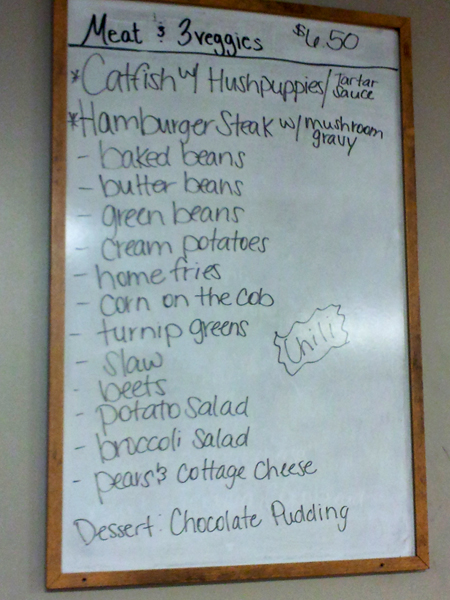 Meat & 3 veggies $6.50
*Catfish w/ Hushpuppies/ Tartar Sauce
*Hamburger Steak w/ mushroom gravy
- baked beans
- butter beans
- green beans
- cream potatoes
- home fries
- corn on the cob
- turnip greens
Chili
- slaw
- beets
- potato salad
- broccoli salad
- pears & cottage cheese
Dessert: Chocolate Pudding